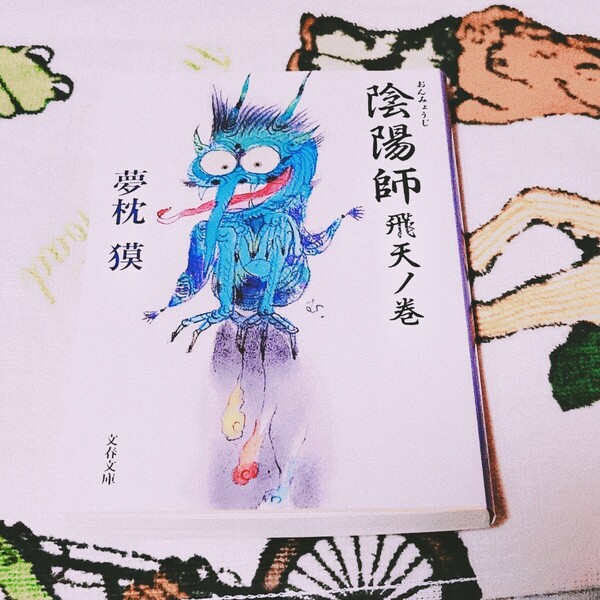 おんみょうじ
陰陽師 飛天ノ巻
夢枕 獏
文春文庫